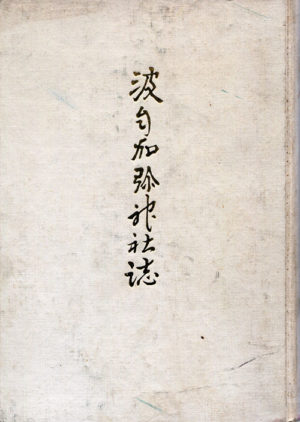 波自加弥神社誌